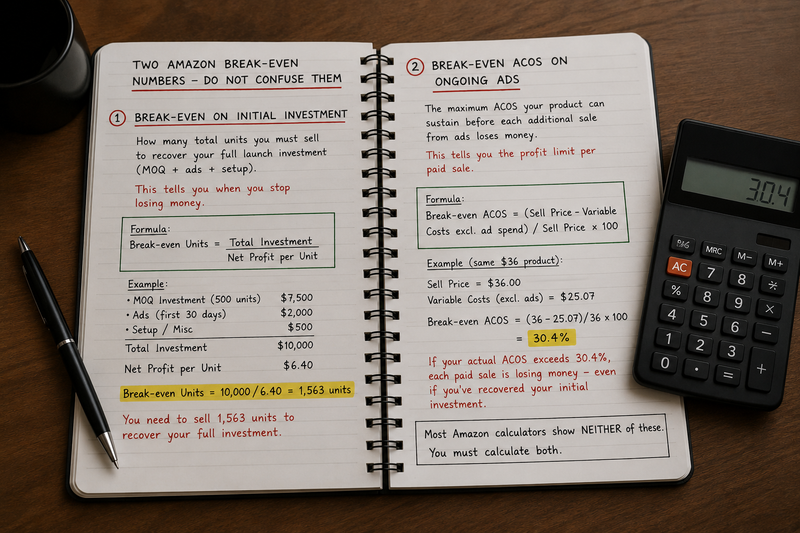 TWO AMAZON BREAK-EVEN
NUMBERS – DO NOT CONFUSE THEM
1 BREAK-EVEN ON INITIAL INVESTMENT
How many total units you must sell
to recover your full launch investment
(MOQ + ads + setup).
This tells you when you stop
losing money.
Formula:
Break-even Units = Total Investment
Net Profit per Unit
Example:
• MOQ Investment (500 units) $7,500
• Ads (first 30 days) $2,000
• Setup / Misc $500
Total Investment $10,000
Net Profit per Unit $6.40
Break-even Units = 10,000 / 6.40 = 1,563 units
You need to sell 1,563 units to
recover your full investment.
2 BREAK-EVEN ACOS ON
ONGOING ADS
The maximum ACOS your product can
sustain before each additional sale
from ads loses money.
This tells you the profit limit per
paid sale.
Formula:
Break-even ACOS = (Sell Price – Variable
Costs excl. ad spend) / Sell Price × 100
Example (same $36 product):
Sell Price = $36.00
Variable Costs (excl. ads) = $25.07
Break-even ACOS = (36 – 25.07)/36 x 100
= 30.4%
If your actual ACOS exceeds 30.4%,
each paid sale is losing money – even
if you've recovered your initial
investment.
Most Amazon calculators show NEITHER of these.
You must calculate both.
30.4
MRC M– M+
AC 7 8 9
% 8 9 ×
4 5 6 –
1 2 3
0 · = +